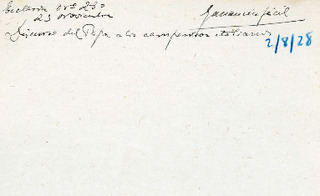 Ecclesia nº 280
23 noviembre
Ganancia fácil
Discurso del Papa a los campesinos italianos
2/8/28